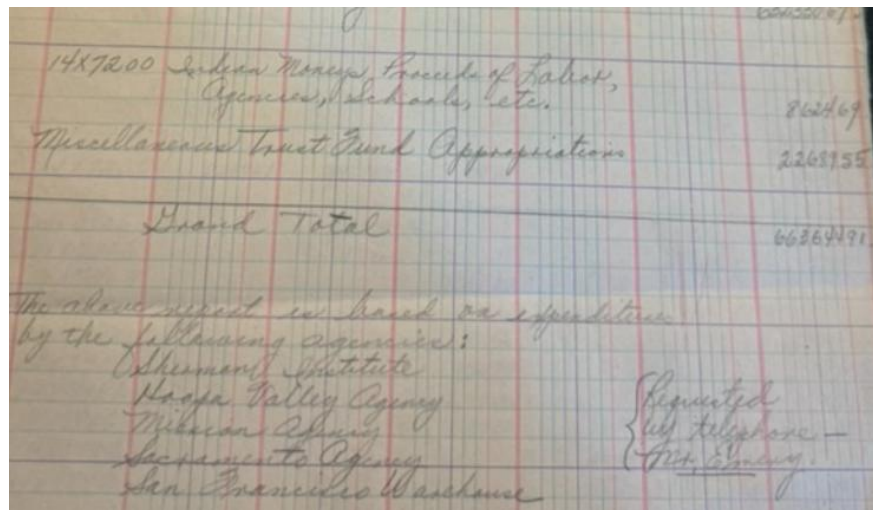 14X7200 Indian Moneys, Proceeds of Labor,
Agencies, Schools, etc. 862469
Miscellaneous Trust Fund Appropriations 2268955
Grand Total 66364491
The above report is based on expenditures
by the following agencies:
Sherman Institute
Hoopa Valley Agency
Mission Agency
Sacramento Agency
San Francisco Warehouse
Requested
by telephone —
Mr. Emery.